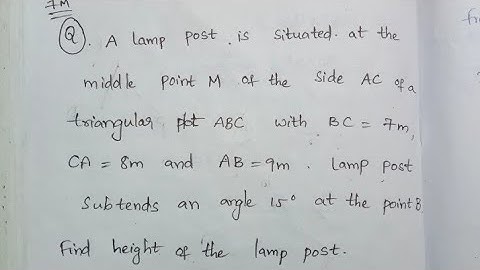 7M
Q. A lamp post is situated at the
middle point M of the side AC of a
triangular plot ABC with BC = 7m,
CA = 8m and AB = 9m. Lamp post
Subtends an angle 15° at the point B.
Find height of the lamp post.